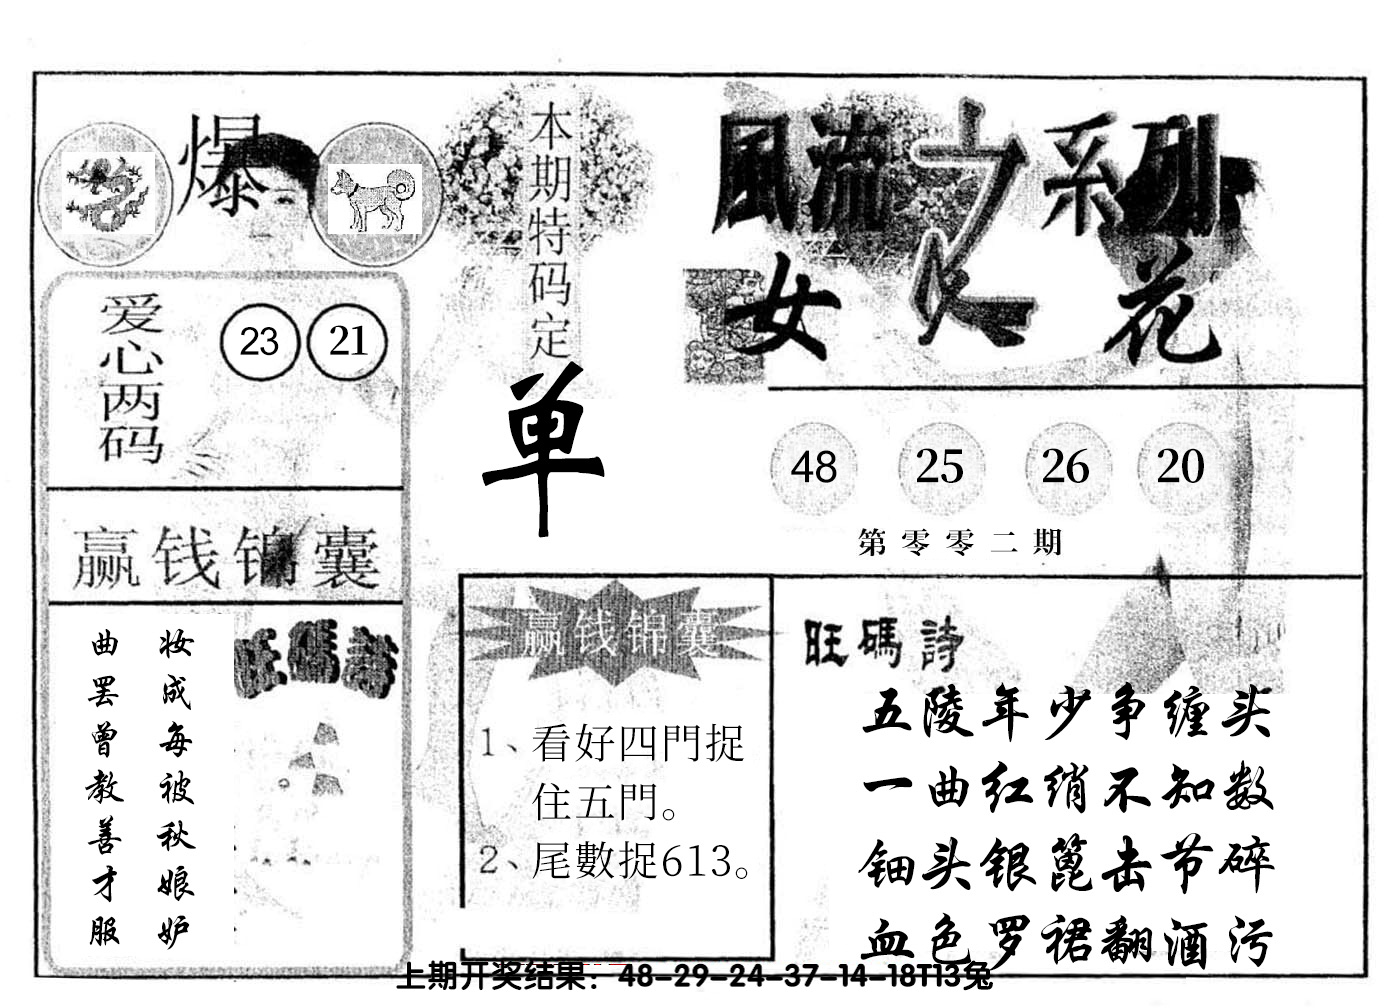 爆
本期特码定
单
風流之系列
女人花
爱心两码
23 21
48 25 26 20
第零零二期
赢钱锦囊
曲罢曾教善才服
妆成每被秋娘妒
旺碼詩
赢钱锦囊
1、看好四門捉
住五門。
2、尾數捉613。
旺碼詩
五陵年少争缠头
一曲红绡不知数
钿头银篦击节碎
血色罗裙翻酒污
上期开奖结果：48-29-24-37-14-18T13兔